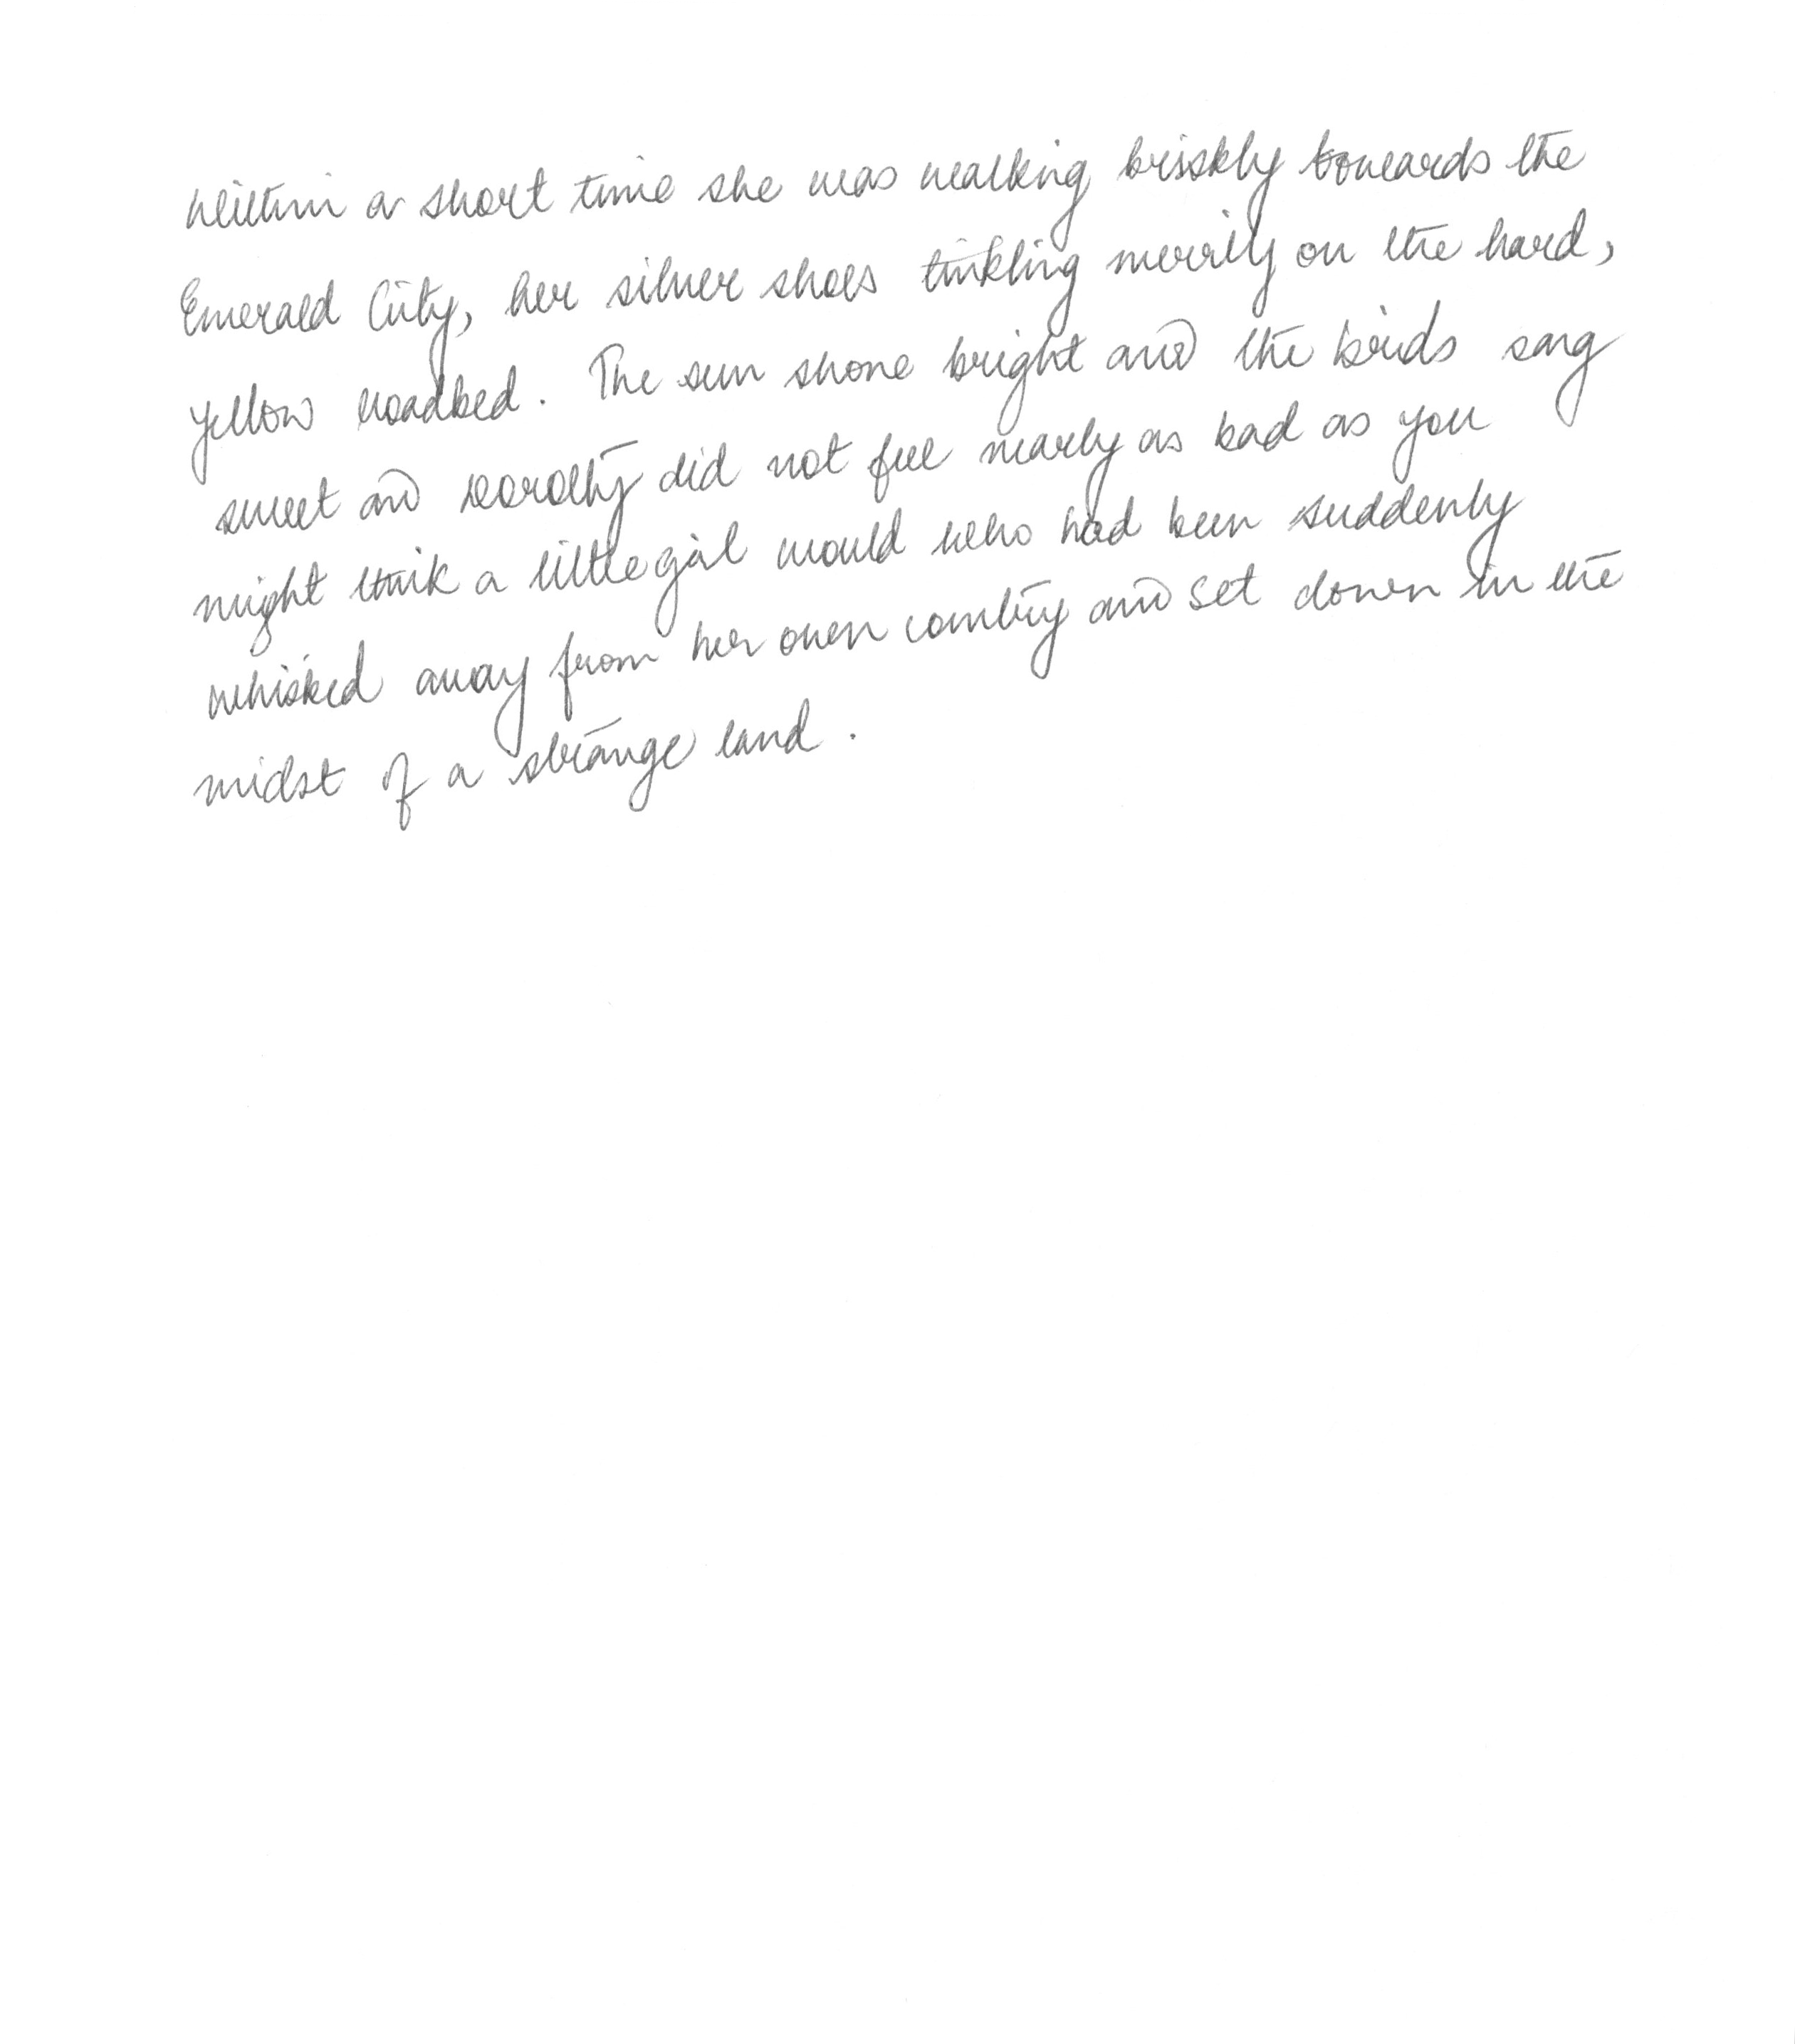 within a short time she was walking briskly towards the
Emerald City, her silver shoes tinkling merrily on the hard,
yellow roadbed. The sun shone bright and the birds sang
sweet and Dorothy did not feel nearly as bad as you
might think a little girl would who had been suddenly
whisked away from her own country and set down in the
midst of a strange land.